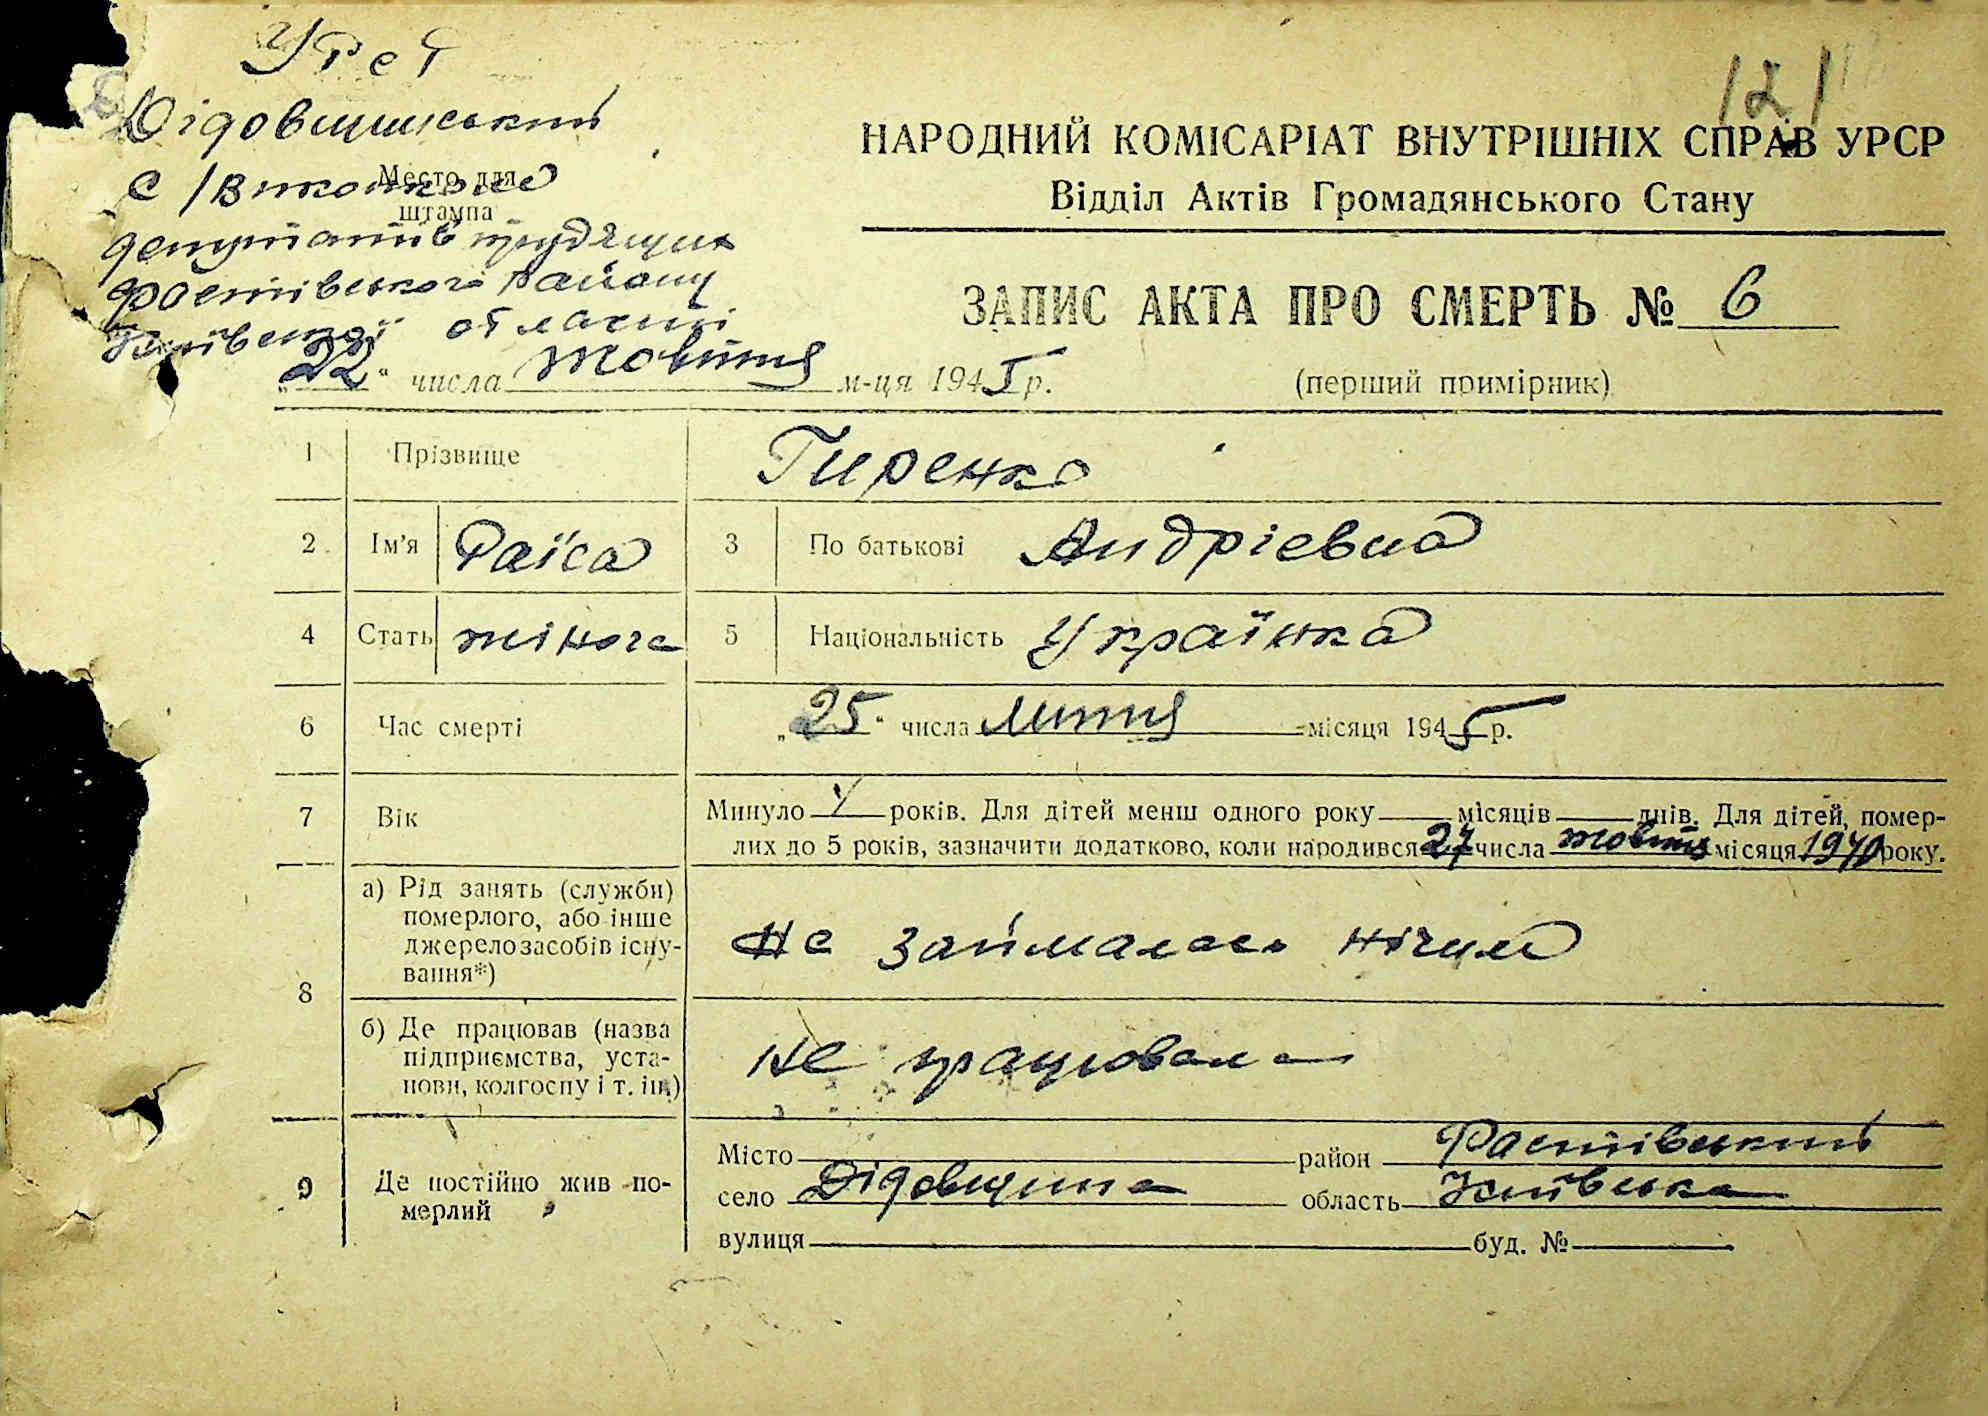 УРСР
Дідовщинський
Место для
с/виконком
штампа
депутатів трудящих
Фастівського району
Київської області
121
НАРОДНИЙ КОМІСАРІАТ ВНУТРІШНІХ СПРАВ УРСР
Відділ Актів Громадянського Стану
ЗАПИС АКТА ПРО СМЕРТЬ № 6
„22“ числа Жовтня м-ця 1945 р.
(перший примірник)
1 Прізвище Гиренко
2 Ім'я Раїса 3 По батькові Андрієвна
4 Стать жіноча 5 Національність Українка
6 Час смерті „25“ числа липня місяця 1945 р.
7 Вік Минуло 4 років. Для дітей менш одного року місяців днів. Для дітей, помер-
лих до 5 років, зазначити додатково, коли народився 27 числа жовтня місяця 1940 року.
8 а) Рід занять (служби)
померлого, або інше
джерело засобів існу-
вання*)
Не займалась нічим
б) Де працював (назва
підприємства, уста-
нови, колгоспу і т. ін.)
не працювала
9 Де постійно жив по-
мерлий
Місто район Фастівський
село Дідовщина область Київська
вулиця буд. №